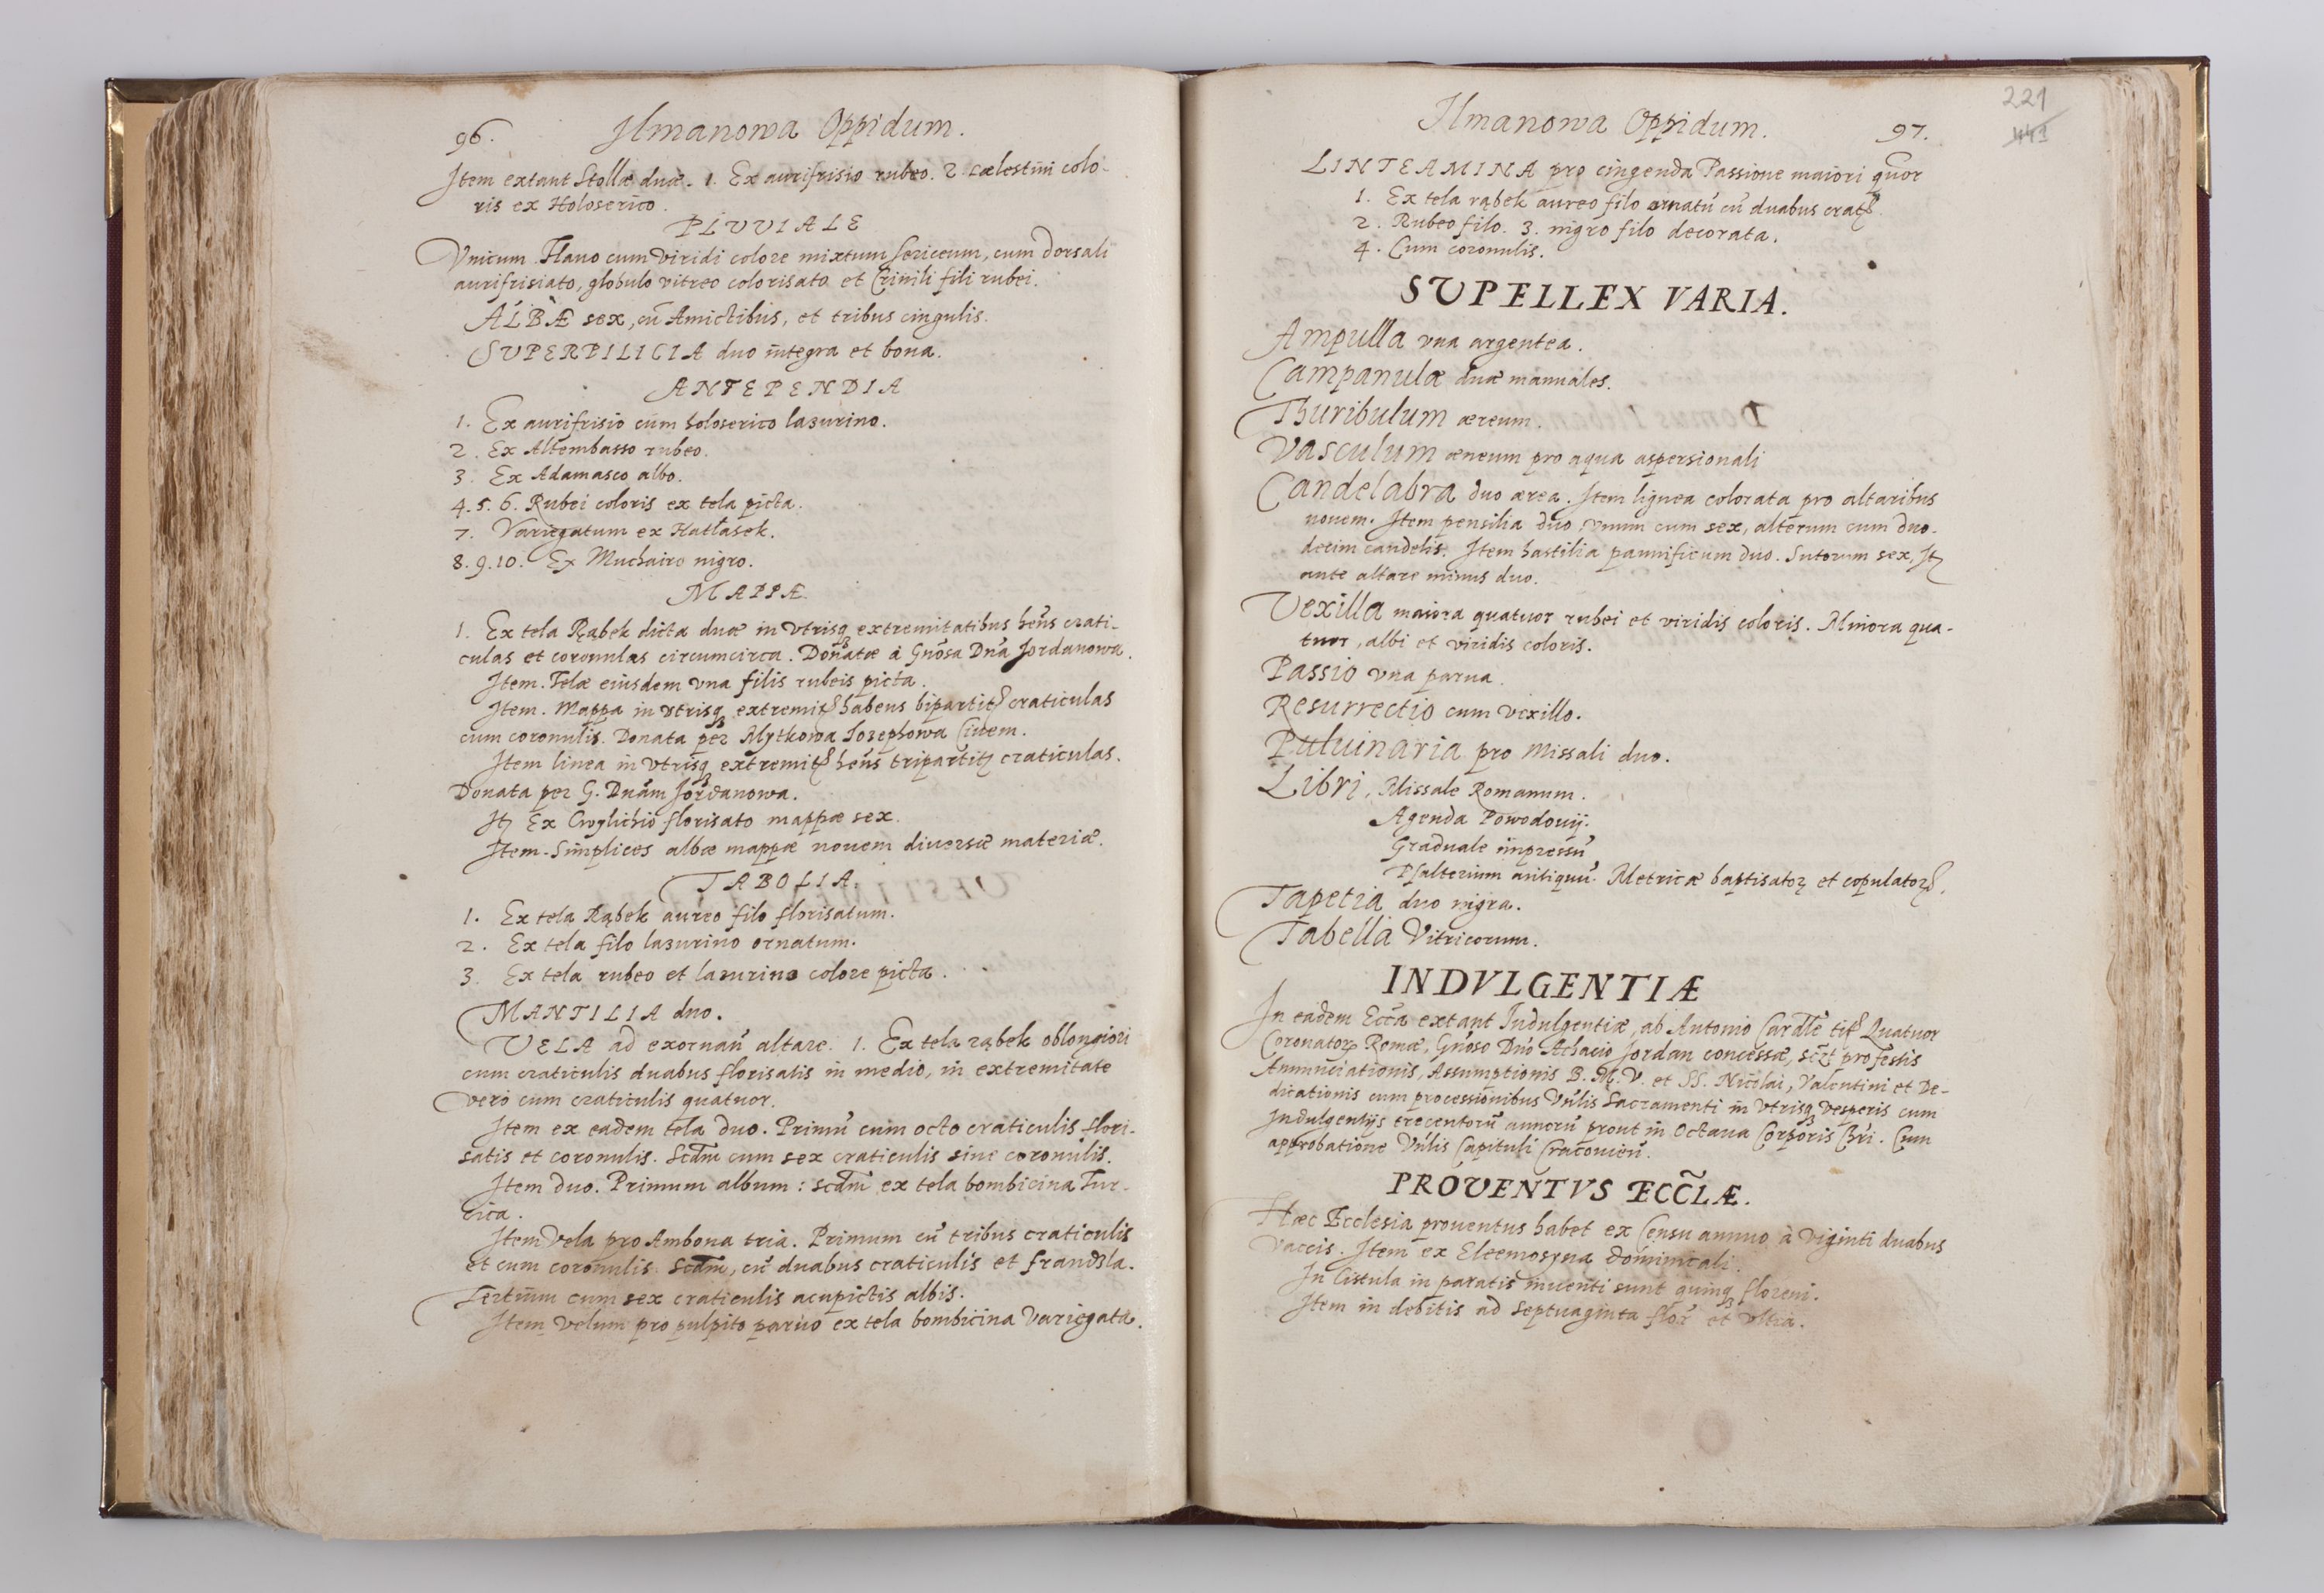 96. Ilmanowa Oppidum.
Item extant Stollæ duæ. 1. Ex aurifrisio rubro. 2 cælestini colo-
ris ex Holoserico.
PLUVIALE
Vnicum Flauo cum viridi colore mixtum sericeum, cum dorsali
aurifrisiato, globulo vitreo colorisato et Crinili fili rubei.
ALBÆ sex, cū Amictibus, et tribus cingulis.
SUPERPILICIA duo integra et bona.
ANTEPENDIA
1. Ex aurifrisio cum holoserico lazurino.
2. Ex Altembasso rubeo.
3. Ex Adamasco albo.
4. 5. 6. Rubei coloris ex tela picta.
7. Variegatum ex Hatłasek.
8. 9. 10. Ex Muchairo nigro.
MAPPÆ
1. Ex tela Rąbek dicta duæ in vtrisq3 extremitatibus hēns crati-
culas et coronulas circumcirca. Donatæ à Gnōsa Dnā Jordanowa.
Item. Telæ eiusdem vna filis rubeis picta.
Item. Mappa in vtrisq3 extremit habens bipartit craticulas
cum coronulis. Donata per Mytkowa Iosephowa Ciuem.
Item linea in vtrisq3 extremit hēns tripartit craticulas.
Donata per G. Dnām Jordanowa.
It Ex Cwylichio florisato mappæ sex.
Item. Simplices albæ mappæ nouem diuersæ materiæ.
TABOLIA.
1. Ex tela Rąbek aureo filo florisatum.
2. Ex tela filo lazurino ornatum.
3. Ex tela rubeo et lazurino colore picta.
MANTILIA duo.
VELA ad exornañ altare. 1. Ex tela rąbek oblongiori
cum craticulis duabus florisatis in medio, in extremitate
vero cum craticulis quatuor.
Item ex eadem tela duo. Primū cum octo craticulis flori-
satis et coronulis. Scdm̄ cum sex craticulis sine coronulis.
Item duo. Primum album: scdm̄ ex tela bombicina Tur-
cica.
Item Vela pro Ambona tria. Primum cū tribus craticulis
et cum coronulis. Scdm̄, cū duabus craticulis et frandzla.
Tertium cum sex craticulis acupictis albis.
Item velum pro pulpito paruo ex tela bombicina variegata.
221
441
Ilmanowa Oppidum. 97.
LINTEAMINA pro cingenda Passione maiori quor
1. Ex tela rąbek aureo filo ornatū cū duabus crat.
2. Rubeo filo. 3. nigro filo decorata.
4. Cum coronulis.
SUPELLEX VARIA.
Ampulla vna argentea.
Campanulæ duæ manuales.
Thuribulum æreum.
Vasculum æneum pro aqua aspersionali
Candelabra duo ærea. Item lignea colorata pro altaribus
nouem. Item pensilia duo, vnum cum sex, alterum cum duo-
decim candelis. Item hastilia pannificum duo. Sutorum sex, It
ante altare minus duo.
Vexilla maiora quatuor rubei et viridis coloris. Minora qua-
tuor, albi et viridis coloris.
Passio vna parua.
Resurrectio cum vexillo.
Puluinaria pro Missali duo.
Libri, Missale Romanum.
Agenda Powodouij.
Graduale impressū
Psalterium antiquū. Metricæ baptisator et copulator.
Tapetia duo nigra.
Tabella Vitricorum.
INDVLGENTIÆ
In eadem Eccā extant Indulgentiæ, ab Antonio Cardlē tit Quatuor
Coronator Romæ, Gnōso Dnō Achacio Jordan concessæ, sclt pro festis
Annunciationis, Assumptionis B. M. V. et SS. Nicolai, Valentini et De-
dicationis cum processionibus Vnlis Sacramenti in vtrisq3 vesperis cum
Indulgentijs trecentorū annorū prout in Octaua Corporis Chri. Cum
approbatione Vnlis Capituli Cracouień.
PROVENTVS ECCLÆ.
Hæc Ecclesia prouentus habet ex Censu annuo à viginti duabus
vaccis. Item ex Eleemosyna dominicali.
In Cistula in paratis inuenti sunt quinq3 floreni.
Item in debitis ad septuaginta flor et vltra.